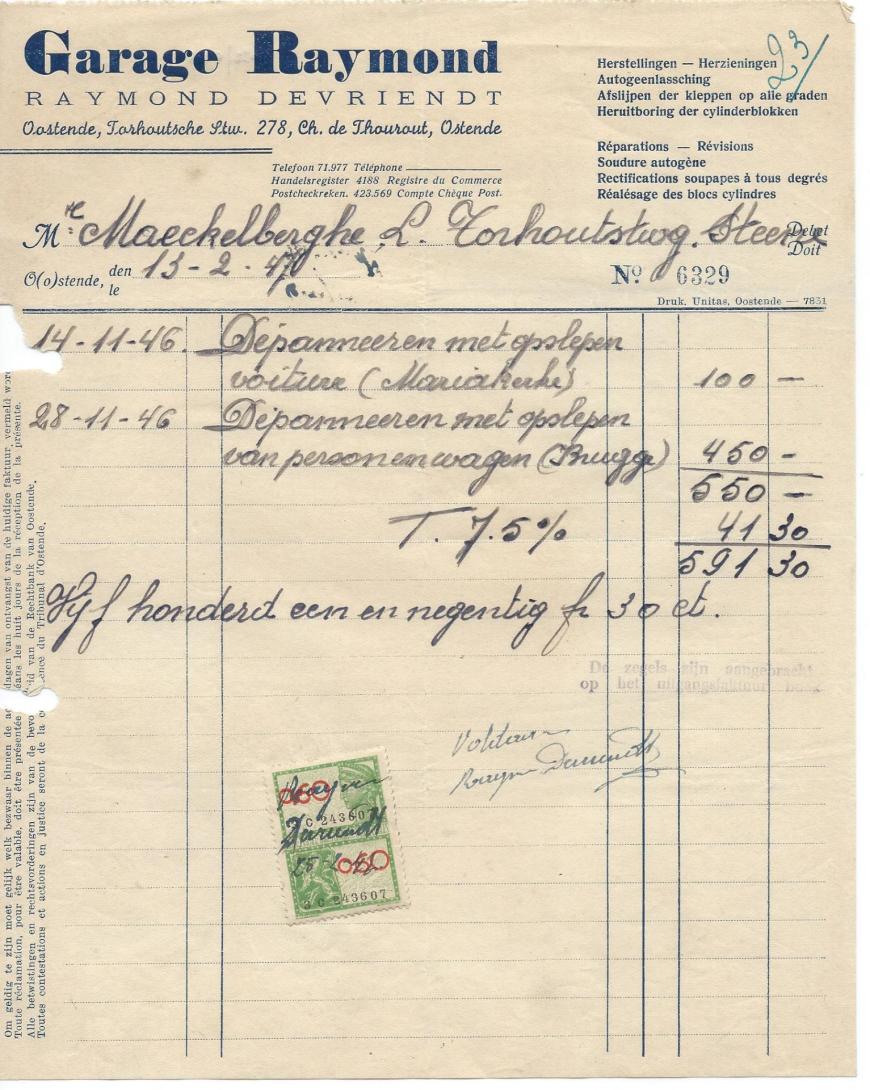 Garage Raymond
RAYMOND DEVRIENDT
Oostende, Torhoutsche Stw. 278, Ch. de Thourout, Ostende
Telefoon 71.977 Téléphone
Handelsregister 4188 Registre du Commerce
Postcheckreken. 423.569 Compte Chèque Post.
23/
Herstellingen — Herzieningen
Autogeenlassching
Afslijpen der kleppen op alle graden
Heruitboring der cylinderblokken
Réparations — Révisions
Soudure autogène
Rectifications soupapes à tous degrés
Réalésage des blocs cylindres
Mr Maeckelberghe L. Torhoutstwg. Steene Debet
Doit
O(o)stende, den 13-2-47
le
No 6329
Druk. Unitas, Oostende — 7831
14-11-46. Depanneeren met opslepen
voiture (Mariakerke) 100 —
28-11-46 Depanneeren met opslepen
van personenwagen (Brugge) 450 -
550 —
T. 7.5% 41 30
591 30
Vijf honderd een en negentig fr 30 ct.
De zegels zijn aangebracht
op het uitgangsfaktuur boek
Voldaan
Raym Devriendt
0.60
Raymon
3 C 243607
Devriendt
0.60
3 C 243607
Om geldig te zijn moet gelijk welk bezwaar binnen de dagen van ontvangst van de huidige faktuur, vermeld
Toute réclamation, pour être valable, doit être présentée dans les huit jours de la réception de la présente.
Alle betwistingen en rechtsvorderingen zijn van de van de Rechtbank van Oostende.
Toutes contestations et actions en justice seront de la du Tribunal d'Ostende.